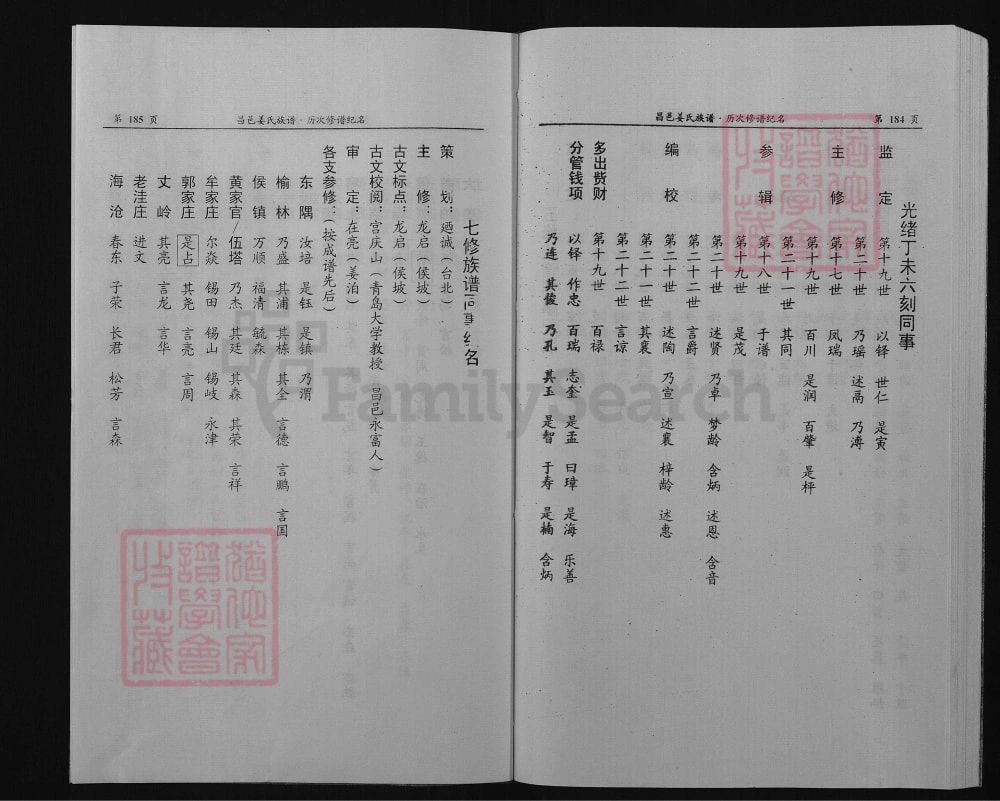 昌邑姜氏族谱·历次修谱纪名 第 184 页
光绪丁未六刻同事
监定 第十九世 以铎 世仁 是寅
第二十世 乃瑶 述鬲 乃溥
主修 第十七世 凤瑞
第十九世 百川 是润 百肇 是枰
第二十一世 其同
参辑 第十八世 于谱
第十九世 是茂
第二十世 述贤 乃卓 梦龄 含炳 述恩 含音
第二十二世 言爵
编校 第二十世 述陶 乃宣 述襄 梓龄 述惠
第二十一世 其襄
第二十二世 言谅
多出赀财 第十九世 百禄
分管钱项 以铎 作忠 百瑞 志奎 是孟 曰璋 是海 乐善
乃连 其俊 乃孔 其玉 是智 于寿 是楠 含炳
第 185 页 昌邑姜氏族谱·历次修谱纪名
七修族谱同事纪名
策划:廼诚(台北)
主修:龙启(侯坡)
古文标点:龙启(侯坡)
古文校阅:宫庆山(青岛大学教授 昌邑永富人)
审定:在亮(姜泊)
各支参修:(按成谱先后)
东隅 汝培 是钰 是镇 乃渭
榆林 乃盛 其浦 其栋 其金 言德 言鹏 言国
侯镇 万顺 福清 毓森
黄家官/伍塔 乃杰 其廷 其森 其荣 言祥
牟家庄 尔焱 锡田 锡山 锡岐 永津
郭家庄 是占 其尧 言亮 言周
丈岭 其亮 言龙 言华
老洼庄 进文
海沧 春东 子荣 长君 松芳 言森
FamilySearch